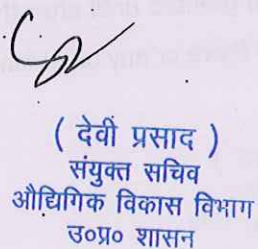 ( देवी प्रसाद )
संयुक्त सचिव
औद्यिगिक विकास विभाग
उ०प्र० शासन